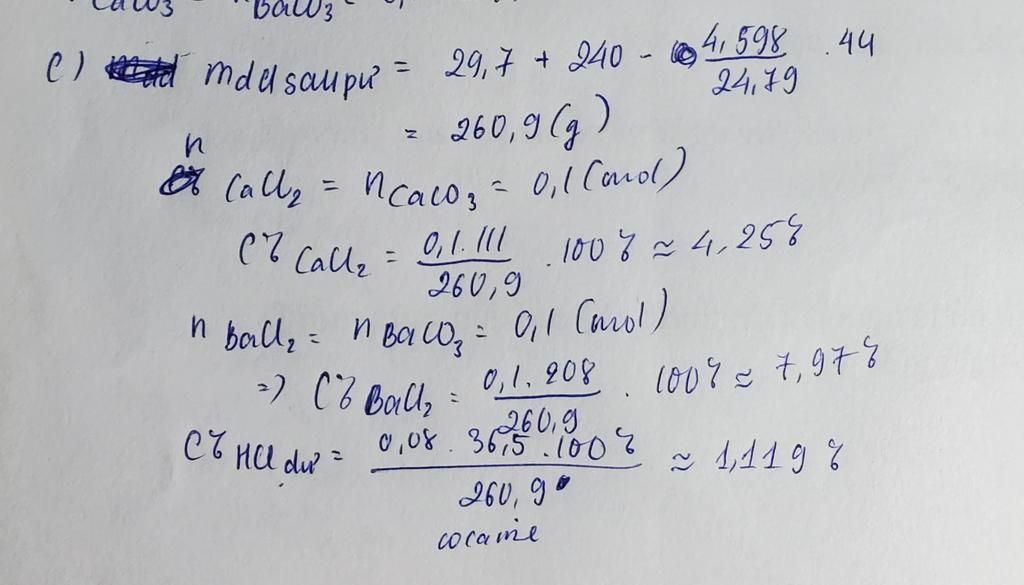 CaCO3 nBaCO3 = 0,
c) mdd sau pư = 29,7 + 240 - 4,598/24,79 . 44
= 260,9 (g)
n CaCl2 = nCaCO3 = 0,1 (mol)
C% CaCl2 = 0,1.111/260,9 . 100% ≈ 4,25%
n BaCl2 = nBaCO3 = 0,1 (mol)
=> C% BaCl2 = 0,1.208/260,9 . 100% ≈ 7,97%
C% HCl dư = 0,08 . 36,5 . 100%/260,9 ≈ 1,119%
cocaine